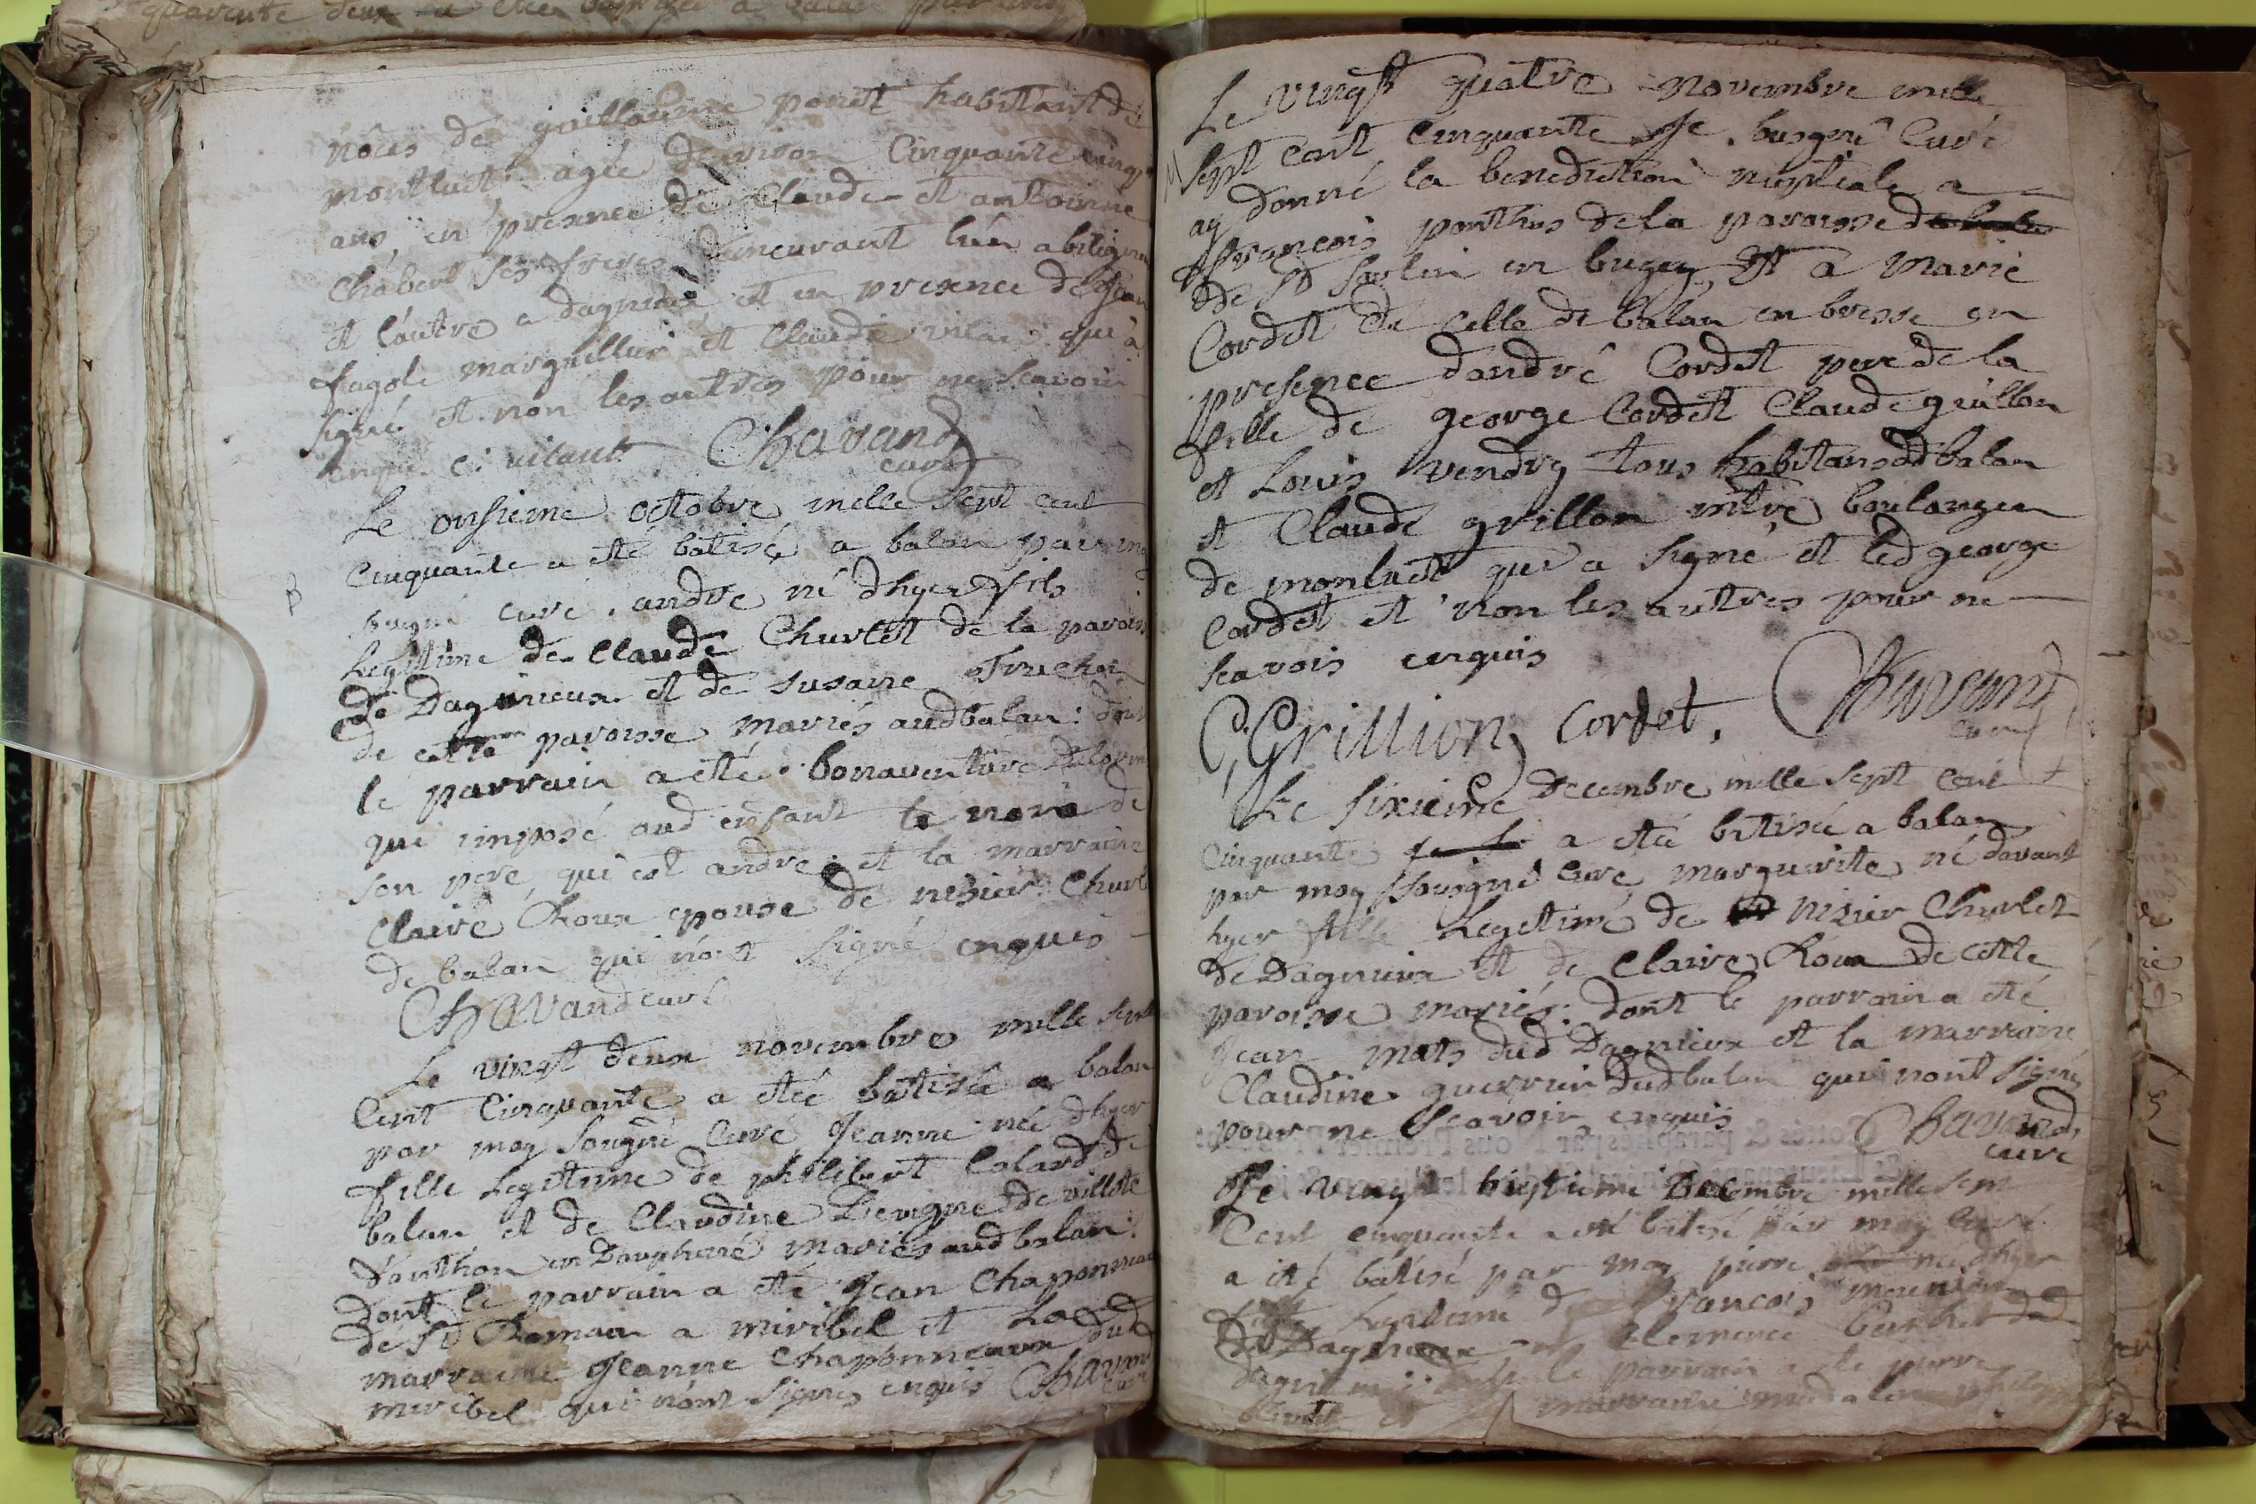 quarente deux a
nôces de guillaume ponet habitant de
montluet agée denviron Cinquante cinq
ans, en presence de Claude et antoinne
Chabert ses freres demeurant lun a
et lautre a dagnieu et en presence de Jean
fagole marguillier et Claude qui a
signé et non les autres pour ne scavoir
enquis Chavand
curé
Le onsieme octobre mille sept cent
Cinquante a eté batisé a balan par
curé. andré né dhyer fils
Legitime de Claude Churlet de la parois
de Dagnieux et de susanne
de cette paroisse mariés audbalan: dont
le parrain a eté bonaventure
qui imposé aud enfant le nom de
son pere, qui est andre: et la marraine
Claire Roux epouse de nisier Churl
de balan qui nont signé enquis
Chavand curé
Le vingt deux novembre mille sept
Cent Cinquante a eteé batisée a balan
par moy sousigné Curé Jeanne née dhyer
fille Legitime de philibert Calard de
balan et de Claudine de villete
d'anthon en Dauphiné mariés aud balan:
dont le parrain a eté Jean Chaponneau
de St Romain a miribel et La
marraine Jeanne Chaponneaux dud
miribel qui nont signés enquis Chavand
B
Le vingt quatre novembre mille
sept cent cinquante Je. Curé
ay donné la benediction nuptiale a
francois ponthus de la paroisse
de St Sorlin en bugey, Et a Marie
Cordet de Celle de balan en bresse en
presence dandré Cordet pere de la
fille de george Cordet Claude guillon
et Louis vendry tous habitans dd balan
et Claude grillon mtre boulanger
de monluet qui a signé et led george
Cordet et non les autres pour ne
scavois enquis
C, Grillion, cordet, Chavand
curé
Le sixieme decembre mille sept cent
Cinquante a eteé batisée a balan
par moy sousigné Curé, marguerite né davant
hyer fille Legetime de nisier Churlet
de Dagnieux et de Claire Roux de cette
paroisse mariés: dont le parrain a eté
Jean mats dud Dagnieux et la marraine
Claudine guerrier dudbalan qui nont signé
pour ne scavoir enquis Chavand,
curé
Le vingt huitieme Decembre mille sept
Cent cinquante a eté batisé par moy curé
a eté batisé par moy pierre né dhyer
Legitime de francois mounier
de Dagnieux Clemence
le parrain a eté pierre
marraine